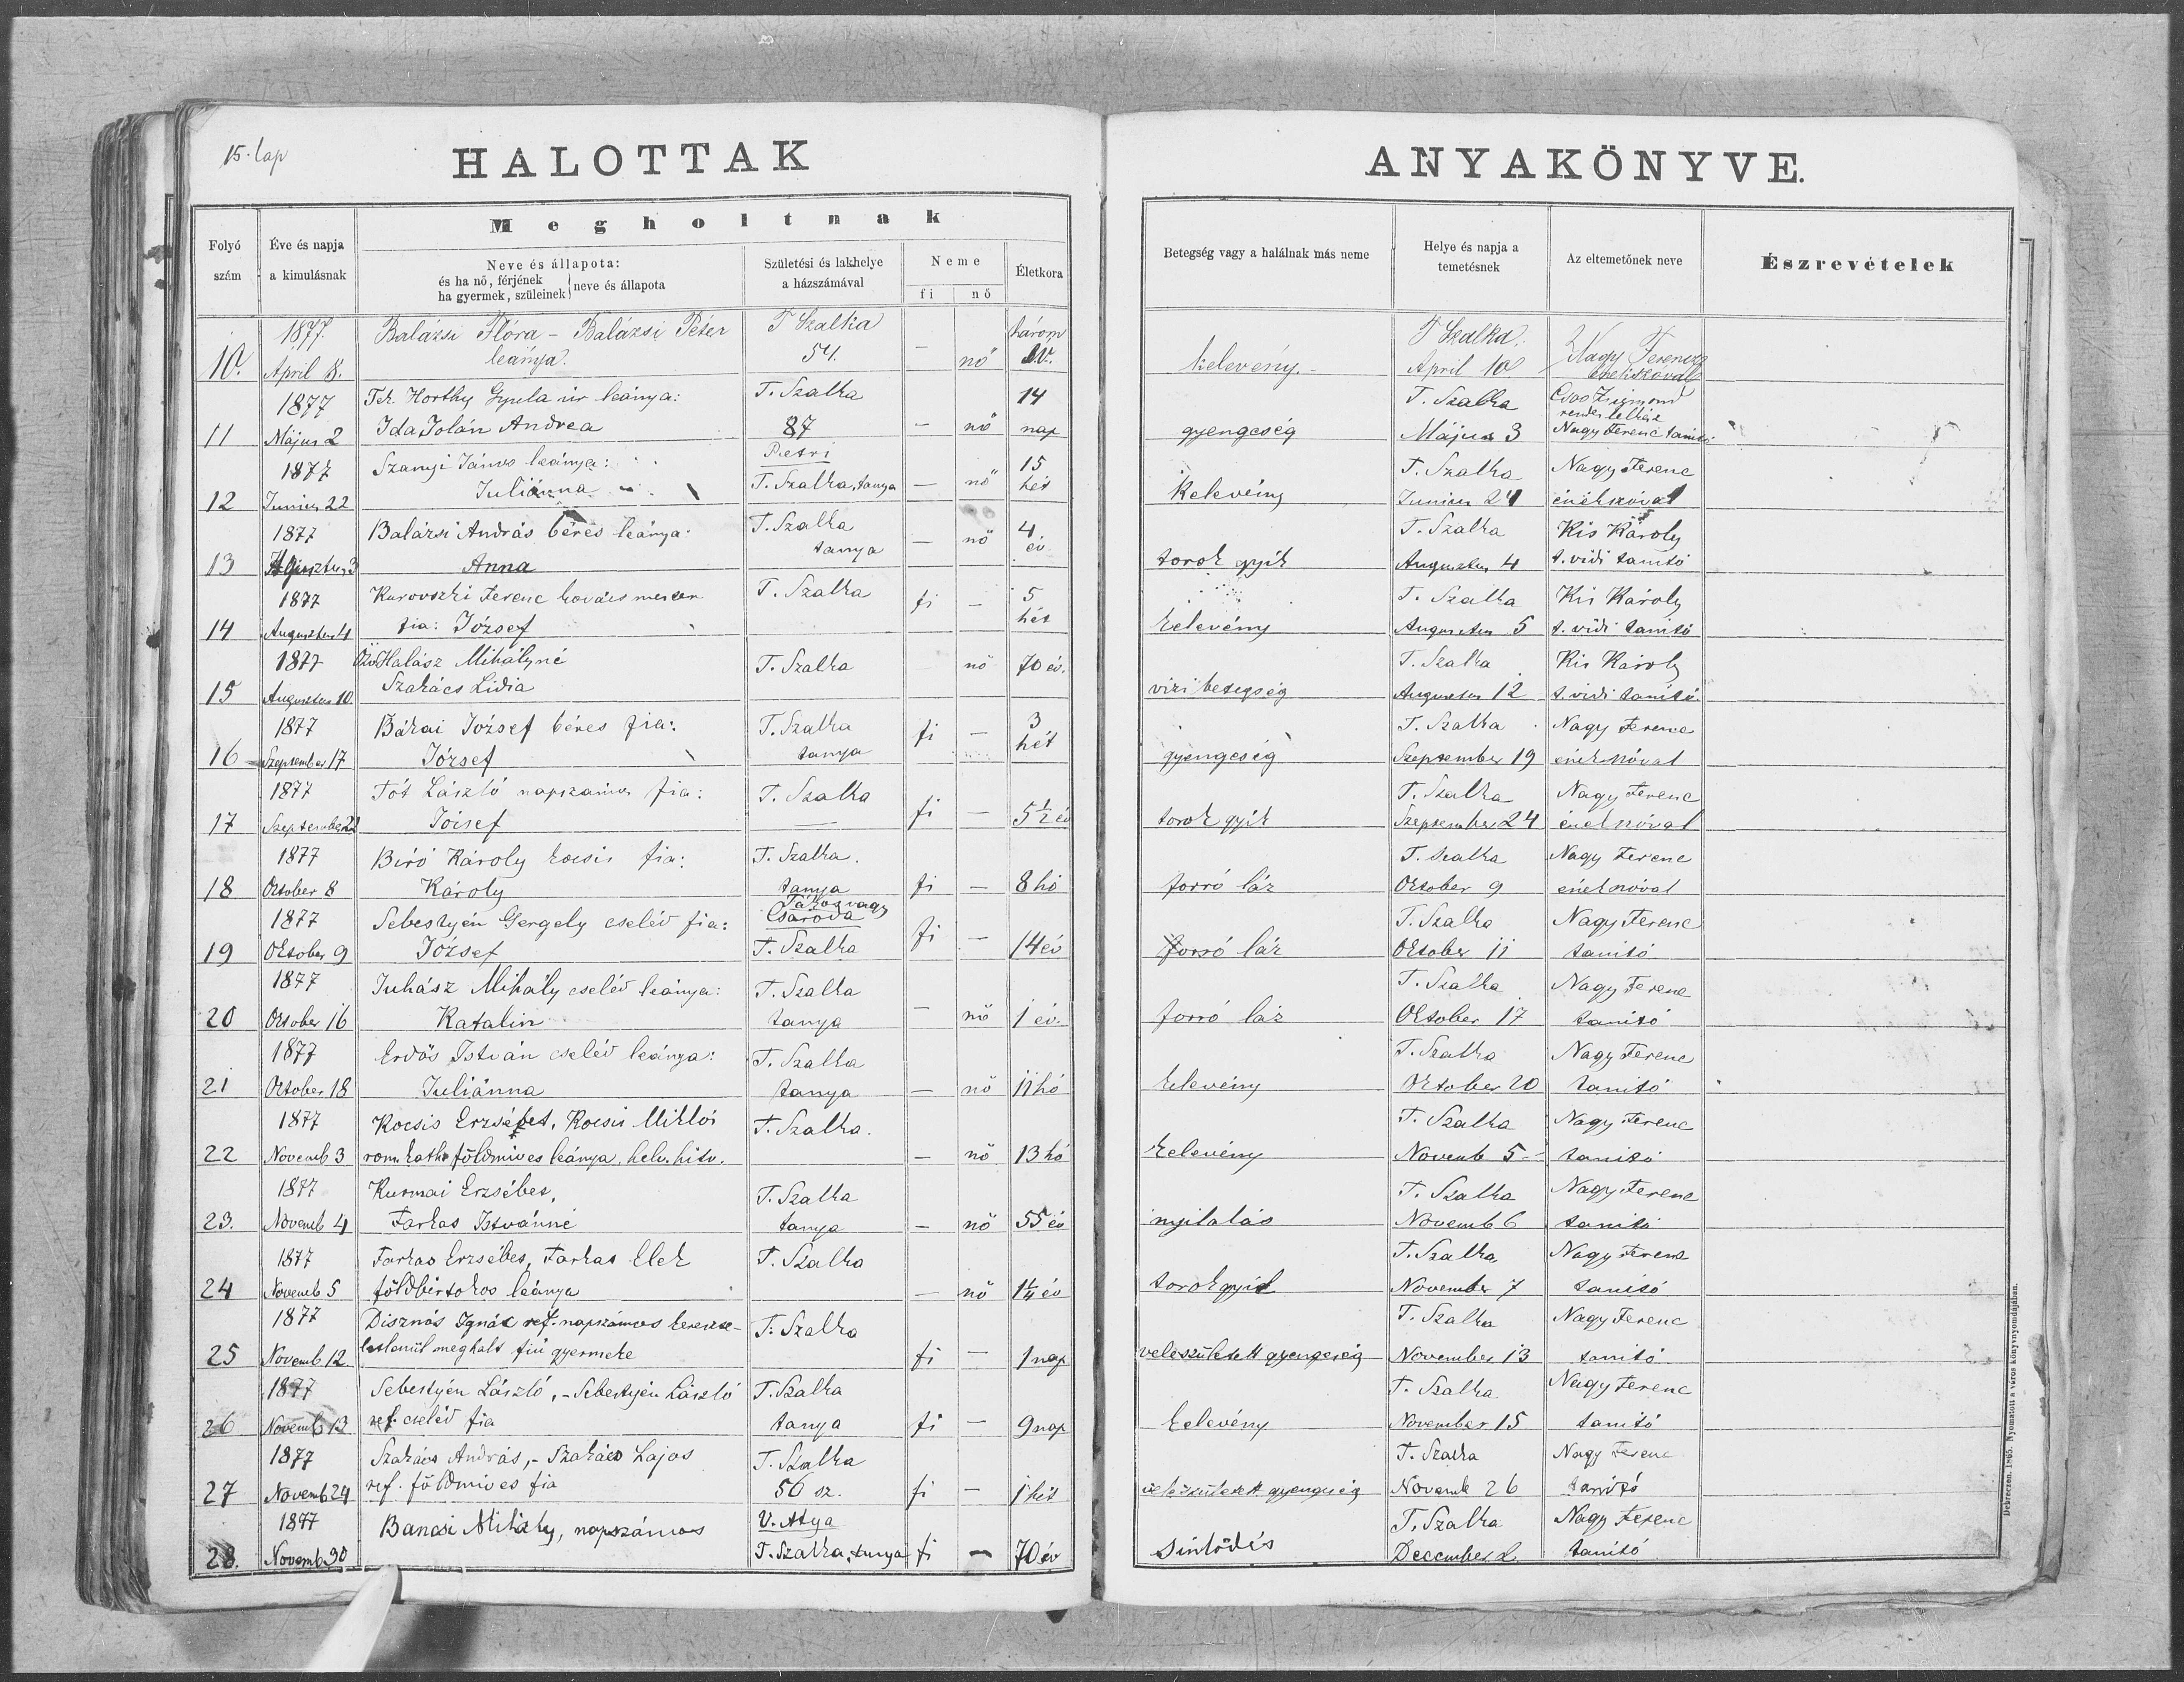 15. lap
HALOTTAK
ANYAKÖNYVE.
Folyó szám
Éve és napja a kimulásnak
Megholtnak
Neve és állapota:
és ha nő, férjének
ha gyermek, szüleinek
neve és állapota
Születési és lakhelye a házszámával
Neme
fi
nő
Életkora
Betegség vagy a halálnak más neme
Helye és napja a temetésnek
Az eltemetőnek neve
Észrevételek
1877. Balázsi Flóra - Balázsi Péter T Szalka három T Szalka. Nagy Ferencz
10. April 8. leánya. 54. — nő év. kelevény. April 10 énekszóval
1877 Tek. Horthy Gyula úr leánya: T. Szalka 14 T. Szalka Zsigmond rendes lelkész
11 Május 2 Ida Jolán Andrea 87 — nő nap gyengeség Május 3 Nagy Ferenc tanitó
1877 Szanyi János leánya: Petri 15 T. Szalka Nagy Ferenc
12 Junius 22 Juliánna T. Szalka, tanya — nő hét Kelevény Junius 24 énekszóval
1877 Balázsi András béres leánya: T. Szalka 4 T. Szalka Kis Károly
13 Augusztus 3 Anna tanya — nő év torok gyik Augusztus 4 t. vidi tanitó
1877 Kurovszki Ferenc kovács mester T. Szalka fi — 5 T. Szalka Kis Károly
14 Augusztus 4 fia: József hét kelevény Augusztus 5 t. vidi tanitó
1877 Özv. Halász Mihályné T. Szalka nő 70 év. T. Szalka Kis Károly
15 Augusztus 10. Szakács Lidia vizi betegség Augusztus 12 t. vidi tanitó.
1877 Bákai József béres fia: T. Szalka fi — 3 T. Szalka Nagy Ferenc
16 Szeptember 17 József tanya hét gyengeség Szeptember 19 énekszóval
1877 Tót László napszámos fia: T. Szalka T. Szalka Nagy Ferenc
17 Szeptember 22 József — fi — 5 1/2 év torok gyik Szeptember 24 énekszóval
1877 Biró Károly kocsis fia: T. Szalka. T. Szalka Nagy Ferenc
18 Oktober 8 Károly tanya fi — 8 hó forró láz Oktober 9 énekszóval
1877 Sebestyén Gergely cseléd fia: Tákos vagy Csaroda T. Szalka Nagy Ferenc
19 Oktober 9 József T. Szalka fi — 14 év forró láz Oktober 11 tanitó
1877 Juhász Mihály cseléd leánya: T. Szalka T. Szalka Nagy Ferenc
20 Oktober 16 Katalin tanya — nő 1 év. forró láz Oktober 17 tanitó
1877 Erdős István cseléd leánya: T. Szalka T. Szalka Nagy Ferenc
21 Oktober 18 Juliánna tanya — nő 11 hó kelevény Oktober 20 tanitó
1877 Kocsis Erzsébet, Kocsis Miklós T. Szalka. T. Szalka Nagy Ferenc
22 Novemb 3 rom. kath. földmives leánya, helv. hitv. — nő 13 hó kelevény Novemb 5 tanitó
1877 Kurmai Erzsébet, T. Szalka T. Szalka Nagy Ferenc
23. Novemb 4 Farkas Istvánné tanya — nő 55 év nyilalás Novemb 6 tanitó
1877 Farkas Erzsébet, Farkas Elek T. Szalka T. Szalka Nagy Ferenc
24 Novemb 5 földbirtokos leánya — nő 1 1/4 év torokgyik November 7 tanitó
1877 Disznós Ignác ref. napszámos keresz- T. Szalka T. Szalka Nagy Ferenc
25 Novemb. 12 teletlenül meghalt fiú gyermeke fi — 1 nap veleszületett gyengeség November 13 tanitó
1877 Sebestyén László, - Sebestyén László T. Szalka T. Szalka Nagy Ferenc
26 Novemb 13 ref. cseléd fia tanya fi — 9 nap kelevény November 15 tanitó
1877 Szakács András, - Szakács Lajos T. Szalka T. Szalka Nagy Ferenc
27 Novemb 24 ref. földmives fia 56 sz. fi — 1 hét veleszületett gyengeség Novemb 26 tanitó
1877 Bancsi Mihály, napszámos V. Atya T. Szalka Nagy Ferenc
28. Novemb 30 T. Szalka, tanya fi — 70 év sinlődés December 2 tanitó
Debreczen. 1865. Nyomatott a város könyvnyomdájában.